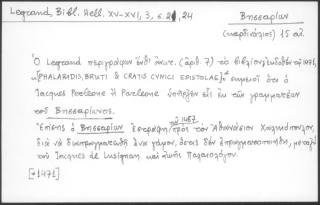 Legrand, Bibl. Hell. XV-XVI, 3, σ. 21, 24
Βησσαρίων
(καρδινάλιος) 15 αἰ.
Ὁ Legrand περιγράφων ἐνθ' ἀνωτ. (ἀριθ. 7) τὸ βιβλίον ἐκδοθὲν τῷ 1471,
"[PHALARIDIS, BRUTI & CRATIS CYNICI EPISTOLAE]" σημειοῖ ὅτι ὁ
Jacques Perléone ἢ Parleone ὑπῆρξεν εἷς ἐκ τῶν γραμματέων
τοῦ Βησσαρίωνος.
Ἐπίσης ὁ Βησσαρίων ἔγραψε πρὸς τὸν Ἀθανάσιον Χαλκεόπουλον,
τῷ 1467
διὰ νὰ διαπραγματευθῇ ἕνα γάμον, ὅστις δὲν ἐπραγματοποιήθη, μεταξὺ
τοῦ Jacques de Lusignan καὶ Ζωῆς Παλαιολόγου.
[+1471]